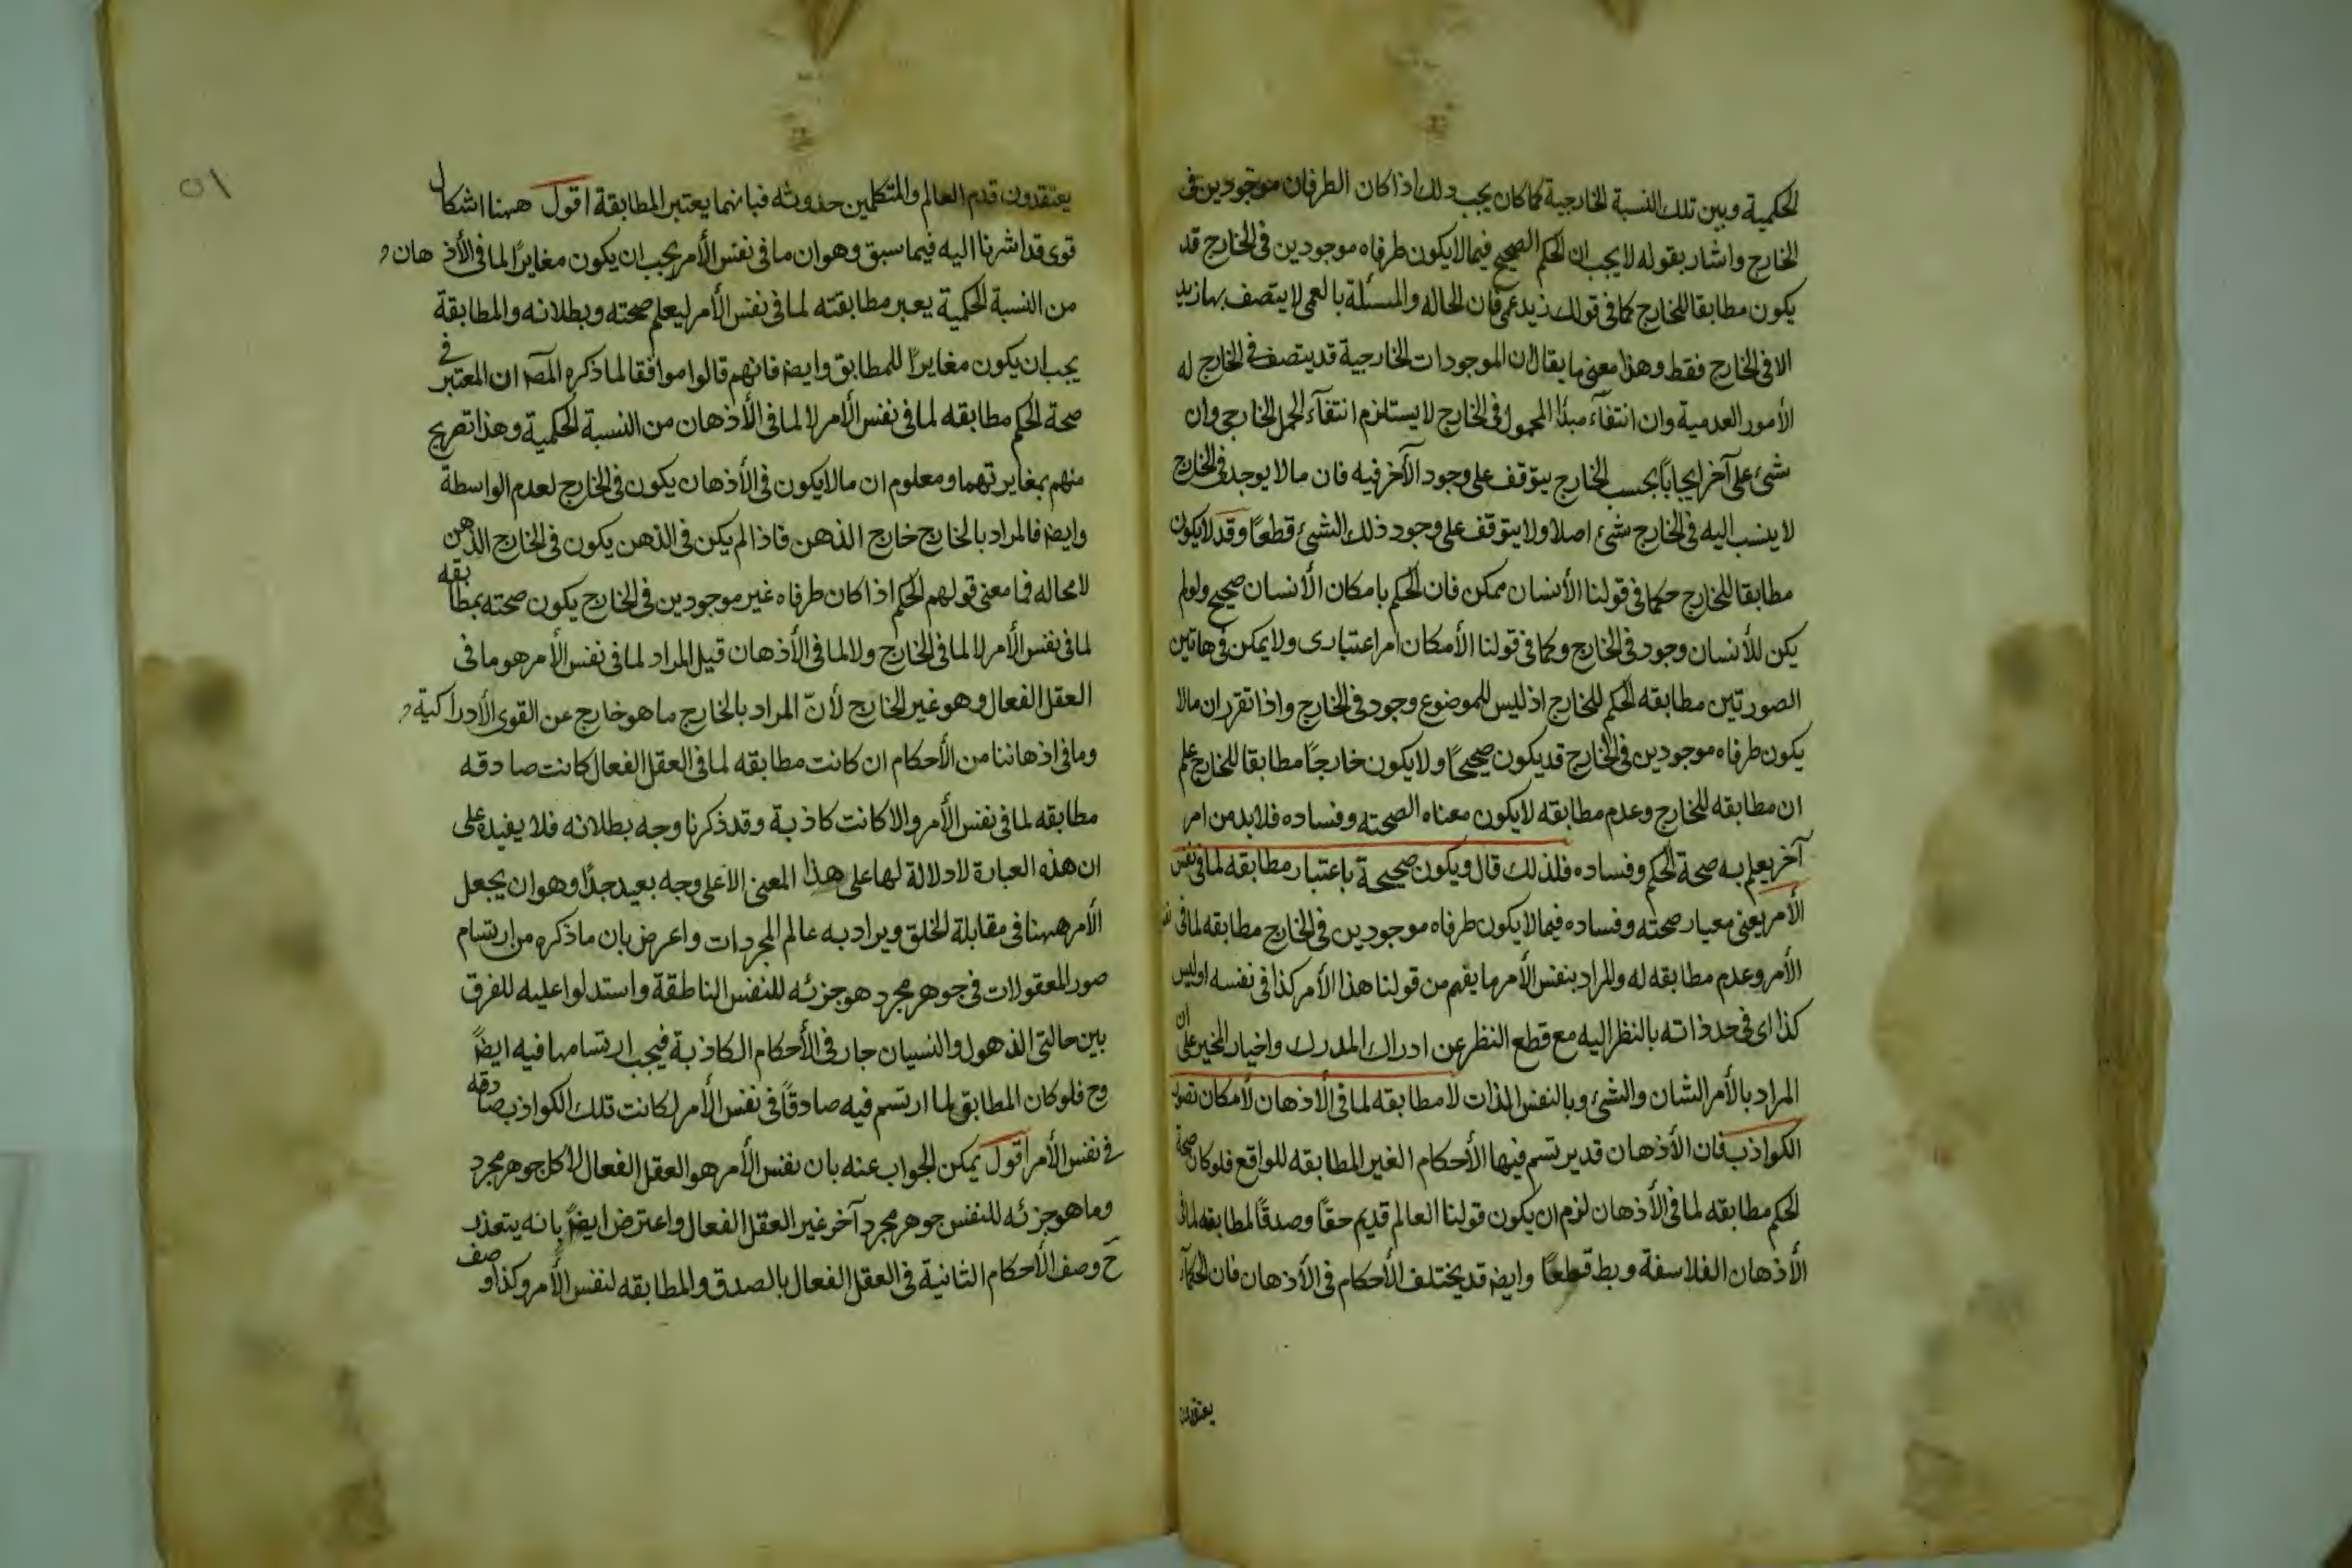 الحكمية وبين تلك النسبة الخارجية كما كان يجب ذلك اذا كان الطرفان موجودين فى
الخارج واشار بقوله لا يجب ان الحكم الصحيح فيما لا يكون طرفاه موجودين فى الخارج قد
يكون مطابقا للخارج كما فى قولك زيد عمى فان الحاله والمسئلة بالعمى لا يتصف بها زيد
الا فى الخارج فقط وهذا معنى ما يقال ان الموجودات الخارجية قد يتصف فى الخارج له
الأمور العدمية وان انتفآء مبدٔا المحمول فى الخارج لا يستلزم انتقآء الحمل الخارجى وان
شئ على آخر ايجاباً بحسب الخارج يتوقف على وجود الآخر فيه فان ما لا يوجد فى الخارج
لا ينسب اليه فى الخارج شئ اصلا ولا يتوقف على وجود ذلك الشئ قطعًا وقد لا يكون
مطابقا للخارج حكما فى قولنا الأنسان ممكن فان الحكم بامكان الأنسان صحيح ولو لم
يكن للأنسان وجود فى الخارج وكما فى قولنا الأمكان امر اعتبارى ولا يمكن فى هاتين
الصورتين مطابقه الحكم للخارج اذ ليس للموضوع وجود فى الخارج واذا تقرر ان مالا
يكون طرفاه موجودين فى الخارج قد يكون صحيحًا ولا يكون خارجًا مطابقا للخارج علم
ان مطابقه للخارج وعدم مطابقه لا يكون معناه الصحته وفساده فلا بد من امر
آخر يعلم به صحة الحكم وفساده فلذلك قال ويكون صحيحة باعتبار مطابقه لما فى نفس
الأمر يعنى معيار صحته وفساده فيما لا يكون طرفاه موجودين فى الخارج مطابقه لما فى نفس
الأمر وعدم مطابقه له والمراد بنفس الأمر ما يفهم من قولنا هذا الأمر كذا فى نفسه او ليس
كذا اى فى حد ذاته بالنظر اليه مع قطع النظر عن ادراك المدرك واخبار المخبر على ان
المراد بالأمر الشان والشئ وبالنفس الذات لا مطابقه لما فى الأذهان لأمكان تصور
الكواذب فان الأذهان قد يرتسم فيها الأحكام الغير المطابقه للواقع فلو كان صحة
الحكم مطابقه لما فى الأذهان لزم ان يكون قولنا العالم قديم حقًا وصدقًا لمطابقه لما فى
الأذهان الفلاسفة وبط قطعًا وايضا قد يختلف الأحكام فى الأذهان فان الحكمآء
يعتقدون
٥١
يعتقدون قدم العالم والمتكلمين حدوثه فبانهما يعتبر المطابقة اقول ههنا اشكال
قوى قد اشرنا اليه فيما سبق وهو ان ما فى نفس الأمر يجب ان يكون مغايرًا لما فى الأذهان و
من النسبة الحكمية يعبر مطابقته لما فى نفس الأمر ليعلم صحته وبطلانه والمطابقة
يجب ان يكون مغايرًا للمطابق وايضا فانهم قالوا موافقا لما ذكره المص ان المعتبر فى
صحة الحكم مطابقه لما فى نفس الأمر لا لما فى الأذهان من النسبة الحكمية وهذا تصريح
منهم بمغايرتهما ومعلوم ان ما لا يكون فى الأذهان يكون فى الخارج لعدم الواسطة
وايضا فالمراد بالخارج خارج الذهن فاذا لم يكن فى الذهن يكون فى الخارج الذهن
لا محاله فما معنى قولهم الحكم اذا كان طرفاه غير موجودين فى الخارج يكون صحته بمطابقه
لما فى نفس الأمر لا لما فى الخارج ولا لما فى الأذهان قيل المراد لما فى نفس الأمر هو ما فى
العقل الفعال وهو غير الخارج لأنّ المراد بالخارج ما هو خارج عن القوى الأدراكية و
وما فى اذهاننا من الأحكام ان كانت مطابقه لما فى العقل الفعال كانت صادقه
مطابقه لما فى نفس الأمر والا كانت كاذبة وقد ذكرنا وجه بطلانه فلا يفيده على
ان هذه العبارة لا دلالة لها على هذا المعنى الا على وجه بعيد جدًا وهو ان يجعل
الأمر ههنا فى مقابلة الخلق ويراد به عالم المجردات واعرض بان ما ذكره من ارتسام
صور المعقولات فى جوهر مجرد هو جزئه للنفس الناطقة واستدلوا عليه للفرق
بين حالتى الذهول والنسيان جار فى الأحكام الكاذبة فيجب ارتسامها فيه ايضاً
وح فلو كان المطابق لما ارتسم فيه صادقًا فى نفس الأمر لكانت تلك الكواذب صادقه
فى نفس الأمر اقول يمكن الجواب عنه بان نفس الأمر هو العقل الفعال لا كل جوهر مجرد
وما هو جزئه للنفس جوهر مجرد آخر غير العقل الفعال واعترض ايضاً بانه يتعذر
ح وصف الأحكام الثانية فى العقل الفعال بالصدق والمطابقه لنفس الأمر وكذا وصف